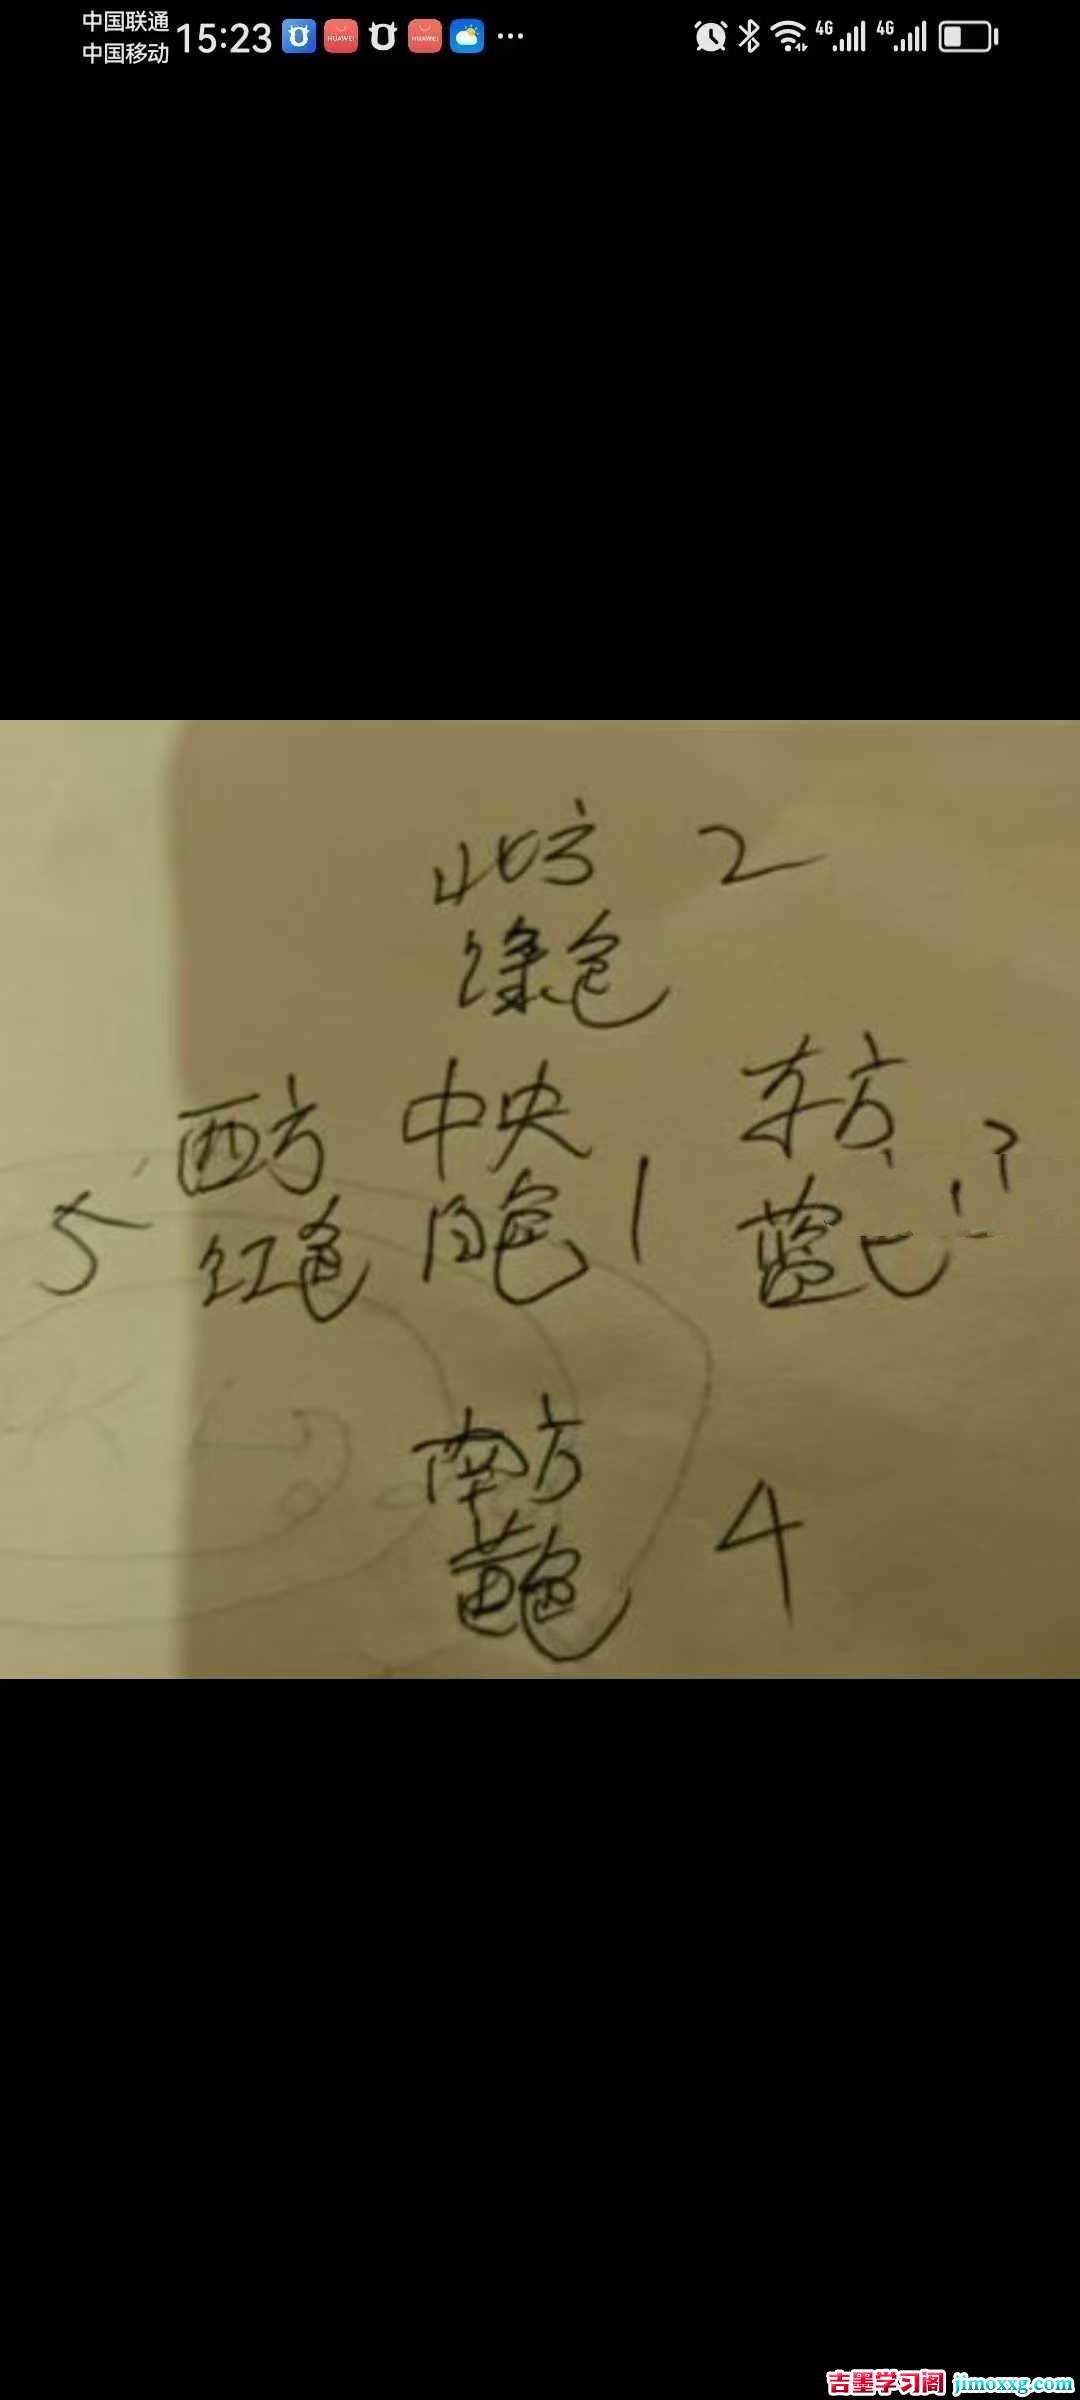 中国联通
中国移动
15:23
HUAWEI
HUAWEI
4G
4G
北方 2
绿色
西方 中央 东方
5 红色 白色 1 蓝
南方
黄色 4
吉墨学习阁 jimoxxg.com